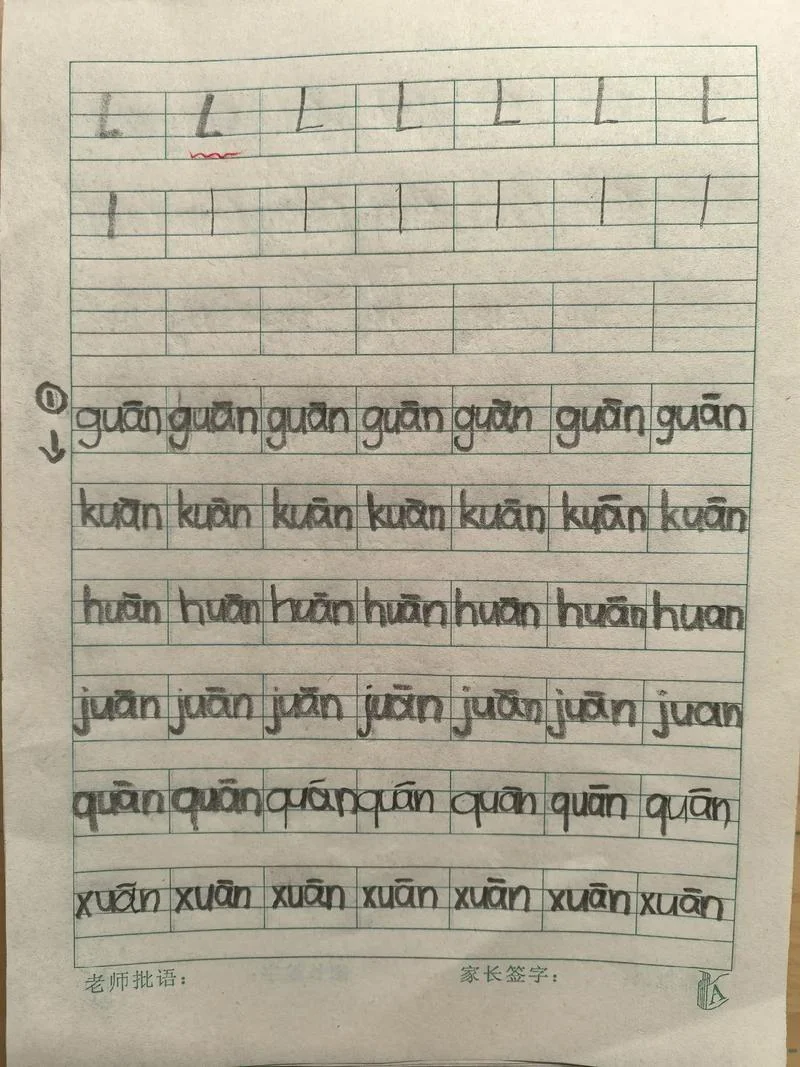 L L L L L L L
l l l l l l l
①
↓
guān guān guān guān guān guān guān
kuān kuān kuān kuān kuān kuān kuān
huān huān huān huān huān huān huan
juān juān juān juān juān juān juan
quān quān quán quán quān quān quān
xuān xuān xuān xuān xuān xuān xuān
老师批语： 家长签字：
A